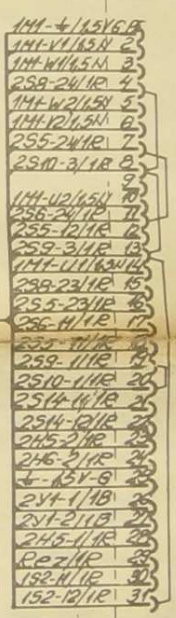 1M1-⏚/1,5VGB
1M1-V1/1,5N 2
1M1-W1/1,5N 3
2S8-24/1R 4
1M1-W2/1,5N 5
1M1-V2/1,5N 6
2S5-24/1R 7
2S10-3/1R 8
9
1M1-U2/1,5N 10
2S6-24/1R 11
2S5-12/1R 12
2S9-3/1R 13
1M1-U1/1,5N 14
2S9-23/1R 15
2S5-23/1R 16
2S6-11/1R 17
2S5-11/1R
2S9-1/1R 19
2S10-1/1R 20
2S14-14/1R
2S14-12/1R
2H5-2/1R 23
2H6-2/1R 24
⏚-1,5V-G
2Y1-1/1B
2Y1-2/1B
2H5-1/1R 28
Rez/1R 29
1S2-11/1R 30
1S2-12/1R 31